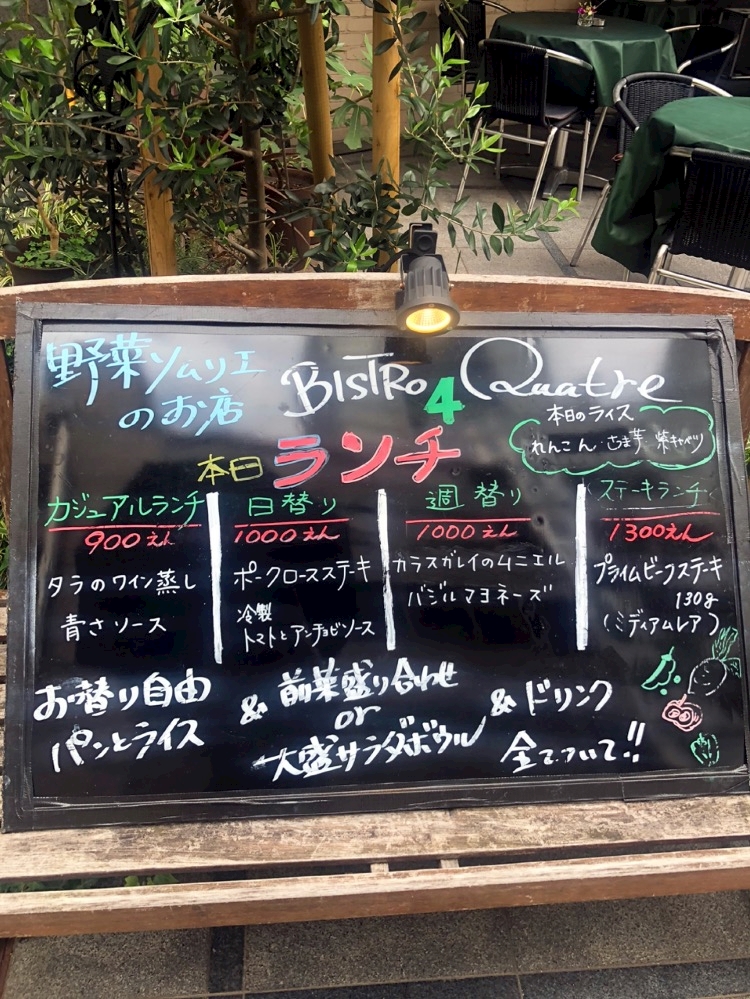 野菜ソムリエ
のお店
BISTRO 4 Quatre
本日のライス
れんこん・さつま芋・紫キャベツ
本日 ランチ
カジュアルランチ
900えん
タラのワイン蒸し
青さソース
日替り
1000えん
ポークロースステーキ
冷製
トマトとアンチョビソース
週替り
1000えん
カラスガレイのムニエル
バジルマヨネーズ
ステーキランチ
1300えん
プライムビーフステーキ
130g
(ミディアムレア)
お替り自由
パンとライス
& 前菜盛り合わせ
or
大盛サラダボウル
& ドリンク
全てついて!!